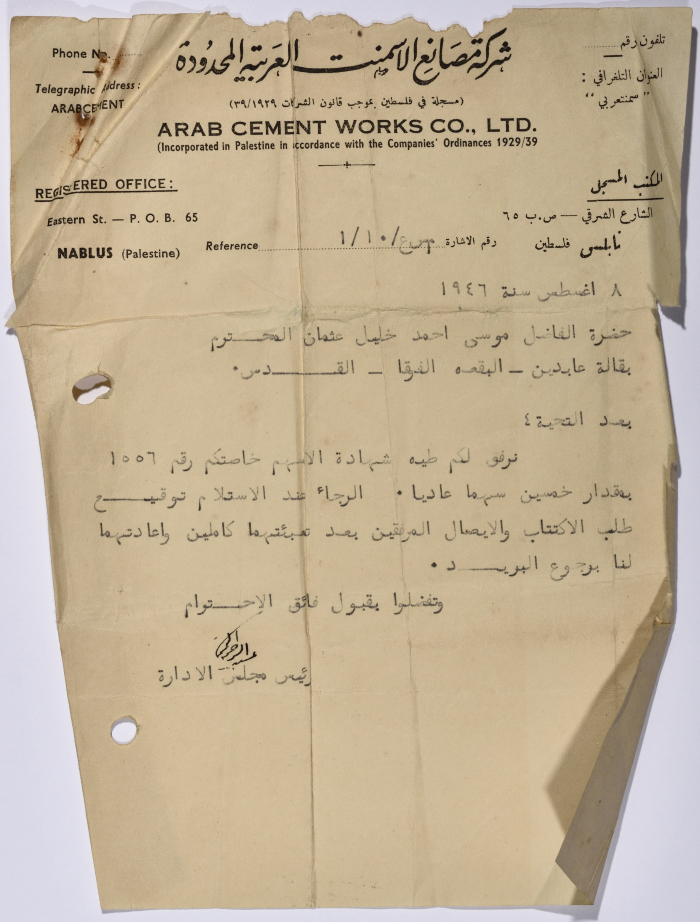 Phone No. ........
تلفون رقم ........
شركة مصانع الاسمنت العربية المحدودة
Telegraphic Address:
ARABCEMENT
العنوان التلغرافي :
"سمنتعربي"
(مسجلة في فلسطين بموجب قانون الشركات ٣٩/١٩٢٩)
ARAB CEMENT WORKS CO., LTD.
(Incorporated in Palestine in accordance with the Companies' Ordinances 1929/39
REGISTERED OFFICE:
المكتب المسجل
Eastern St. — P. O. B. 65
الشارع الشرقي — ص.ب ٦٥
NABLUS (Palestine)
نابلس فلسطين
Reference ........ ١/١٠/ ........ رقم الاشارة
٨ اغسطس سنة ١٩٤٦
حضرة الفاضل موسى احمد خليل عثمان المحـــترم
بقالة عابدين ــ البقعه الفوقا ــ القـــــدس٠
بعد التحية ٤
نرفق لكم طيه شهادة الاسهم خاصتكم رقم ١٥٥٦
بمقدار خمسين سهما عاديا٠ الرجاء عند الاستلام توقيـــع
طلب الاكتتاب والايصال المرفقين بعد تعبئتهما كاملين واعادتهما
لنا برجوع البريـــد ٠
وتفضلوا بقبول فائق الاحـــترام
رئيس مجلس الادارة